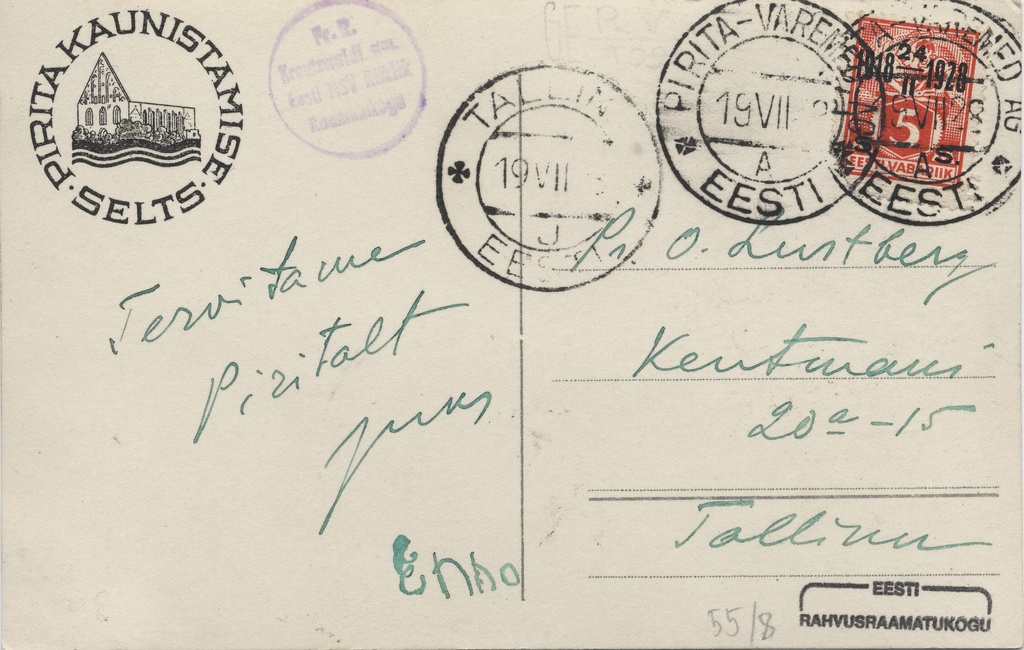 PIRITA KAUNISTAMISE SELTS.
Fr. R.
Kreutzwaldi nim.
Eesti NSV Riiklik
Raamatukogu
TALLINN
19 VII
J
EESTI
PIRITA-VAREMED
19 VII
A
EESTI
VAREMED
AG
19 VII 28
A
EESTI
24
1918 II 1928
5
S. S.
EESTI VABARIIK
Tervitame
Piritalt
Enno
Pr. O. Lustberg
Kentmani
20a-15
Tallinn
55/8
EESTI
RAHVUSRAAMATUKOGU